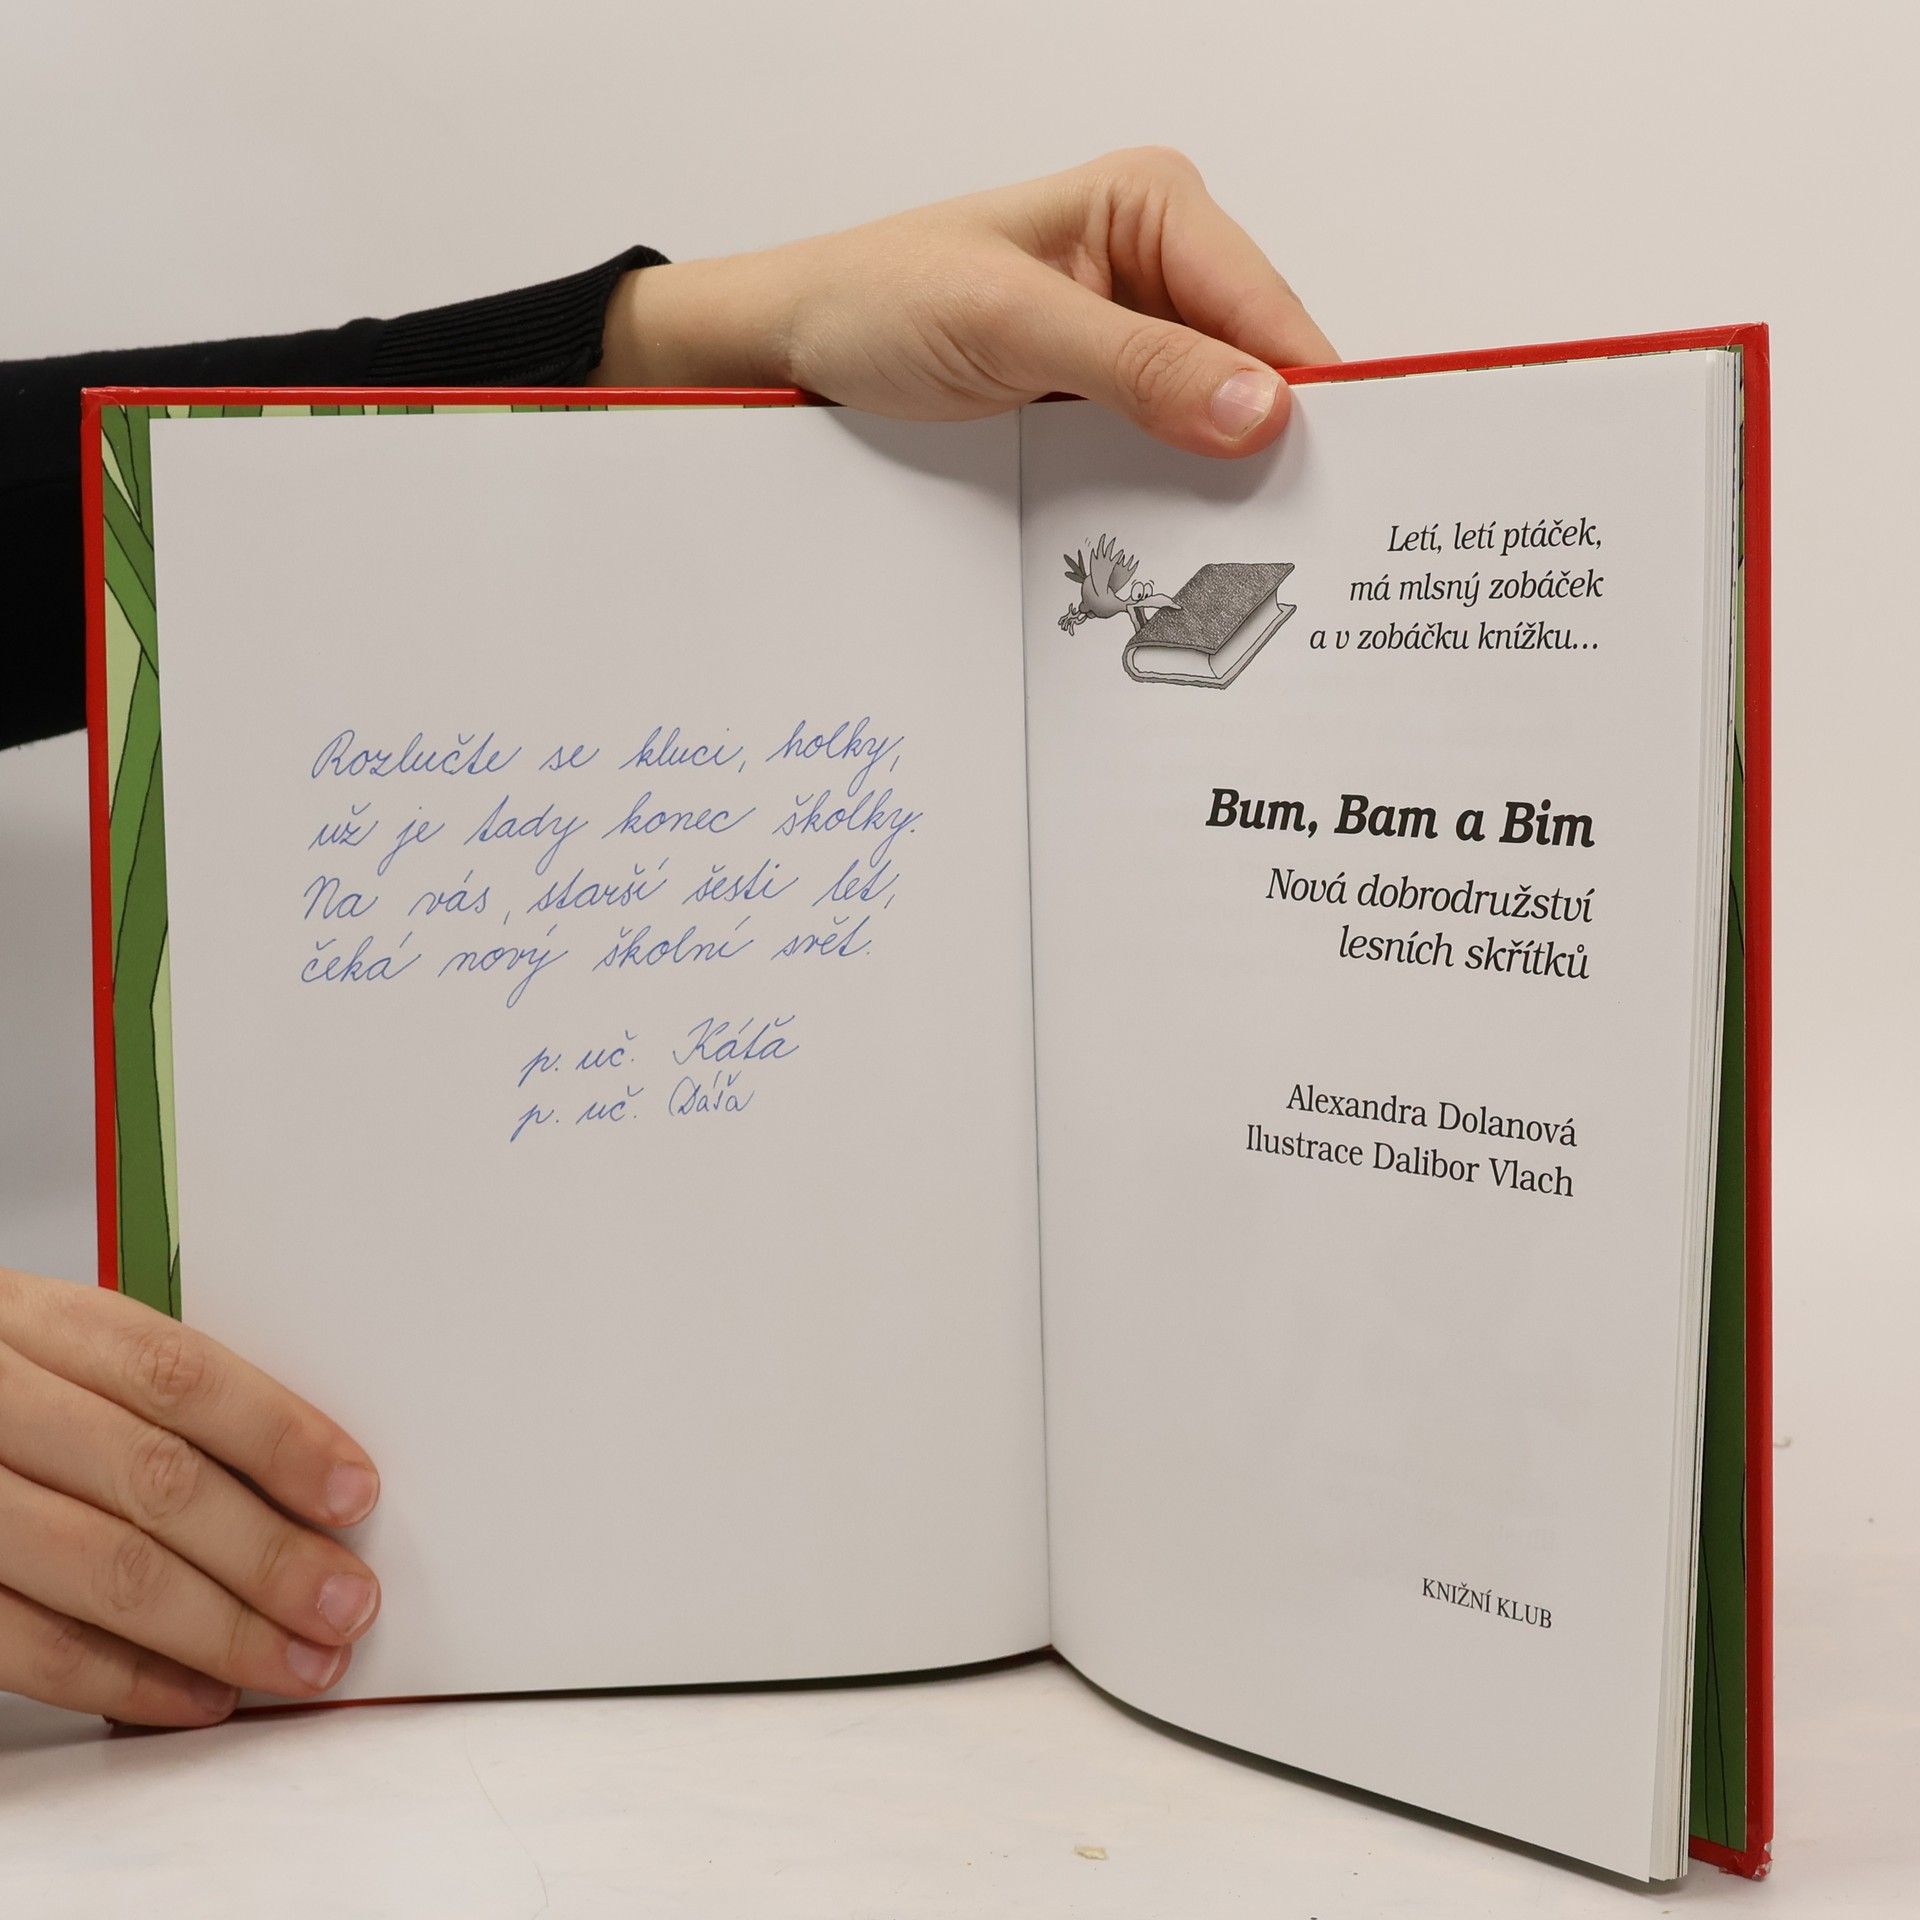 Rozlučte se kluci, holky,
už je tady konec školky.
Na vás, starší šesti let,
čeká nový školní svět.
p. uč. Káťa
p. uč. Dáša
Letí, letí ptáček,
má mlsný zobáček
a v zobáčku knížku...
Bum, Bam a Bim
Nová dobrodružství
lesních skřítků
Alexandra Dolanová
Ilustrace Dalibor Vlach
KNIŽNÍ KLUB